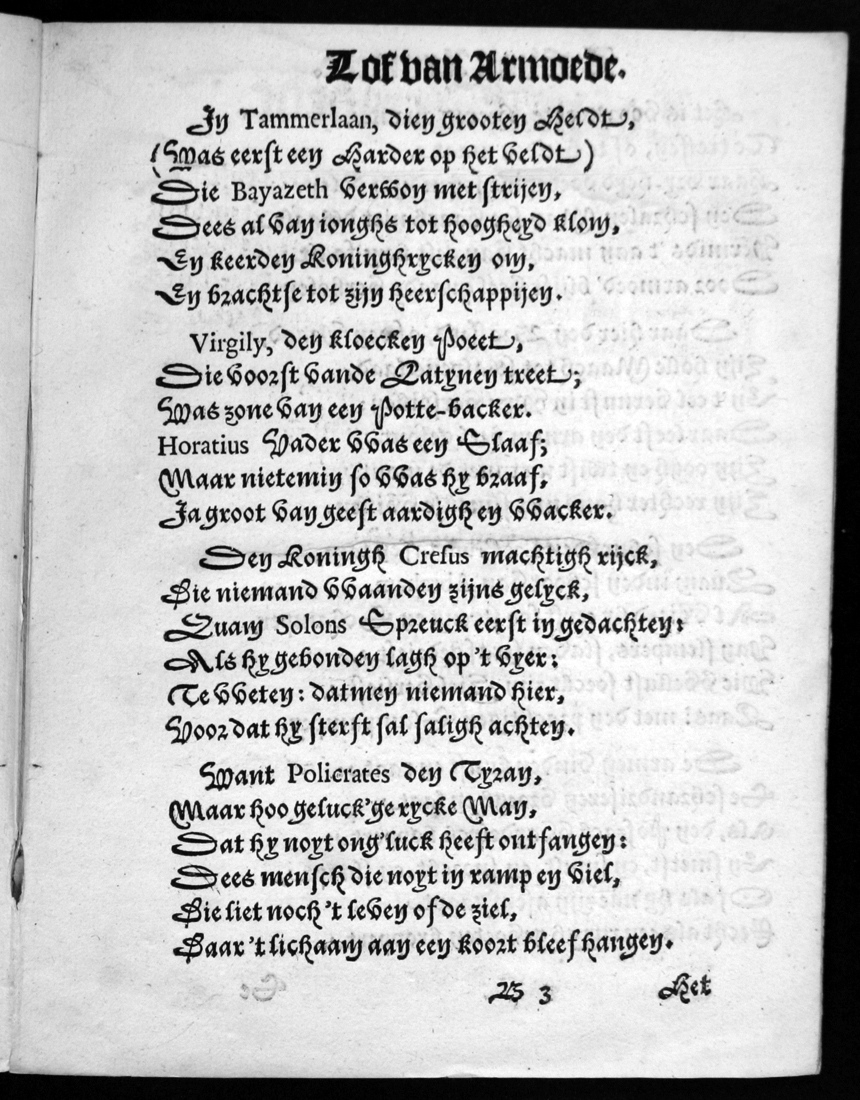 Lof van Armoede.
In Tammerlaan, dien grooten Heldt,
(Was eerst een Harder op het veldt)
Die Bayazeth verwon met strijen,
Dees al van ionghs tot hoogheyd klom,
En keerden Koninghrycken om,
En brachtse tot zijn heerschappijen.
Virgily, den kloecken Poeet,
Die voorst vande Latynen treet;
Was zone van een Potte-backer.
Horatius Vader vvas een Slaaf;
Maar nietemin so vvas hy braaf,
Ja groot van geest aardigh en vvacker.
Den Koningh Cresus machtigh rijck,
Die niemand vvaanden zijns gelyck,
Quam Solons Spreuck eerst in gedachten:
Als hy gebonden lagh op 't vyer:
Te vveten: datmen niemand hier,
Voor dat hy sterft sal saligh achten.
Want Policrates den Tyran,
Maar hoo geluck'ge rycke Man,
Dat hy noyt ong'luck heeft ontfangen:
Dees mensch die noyt in ramp en viel,
Die liet noch 't leven of de ziel,
Daar 't lichaam aan een koort bleef hangen.
B 3 Het